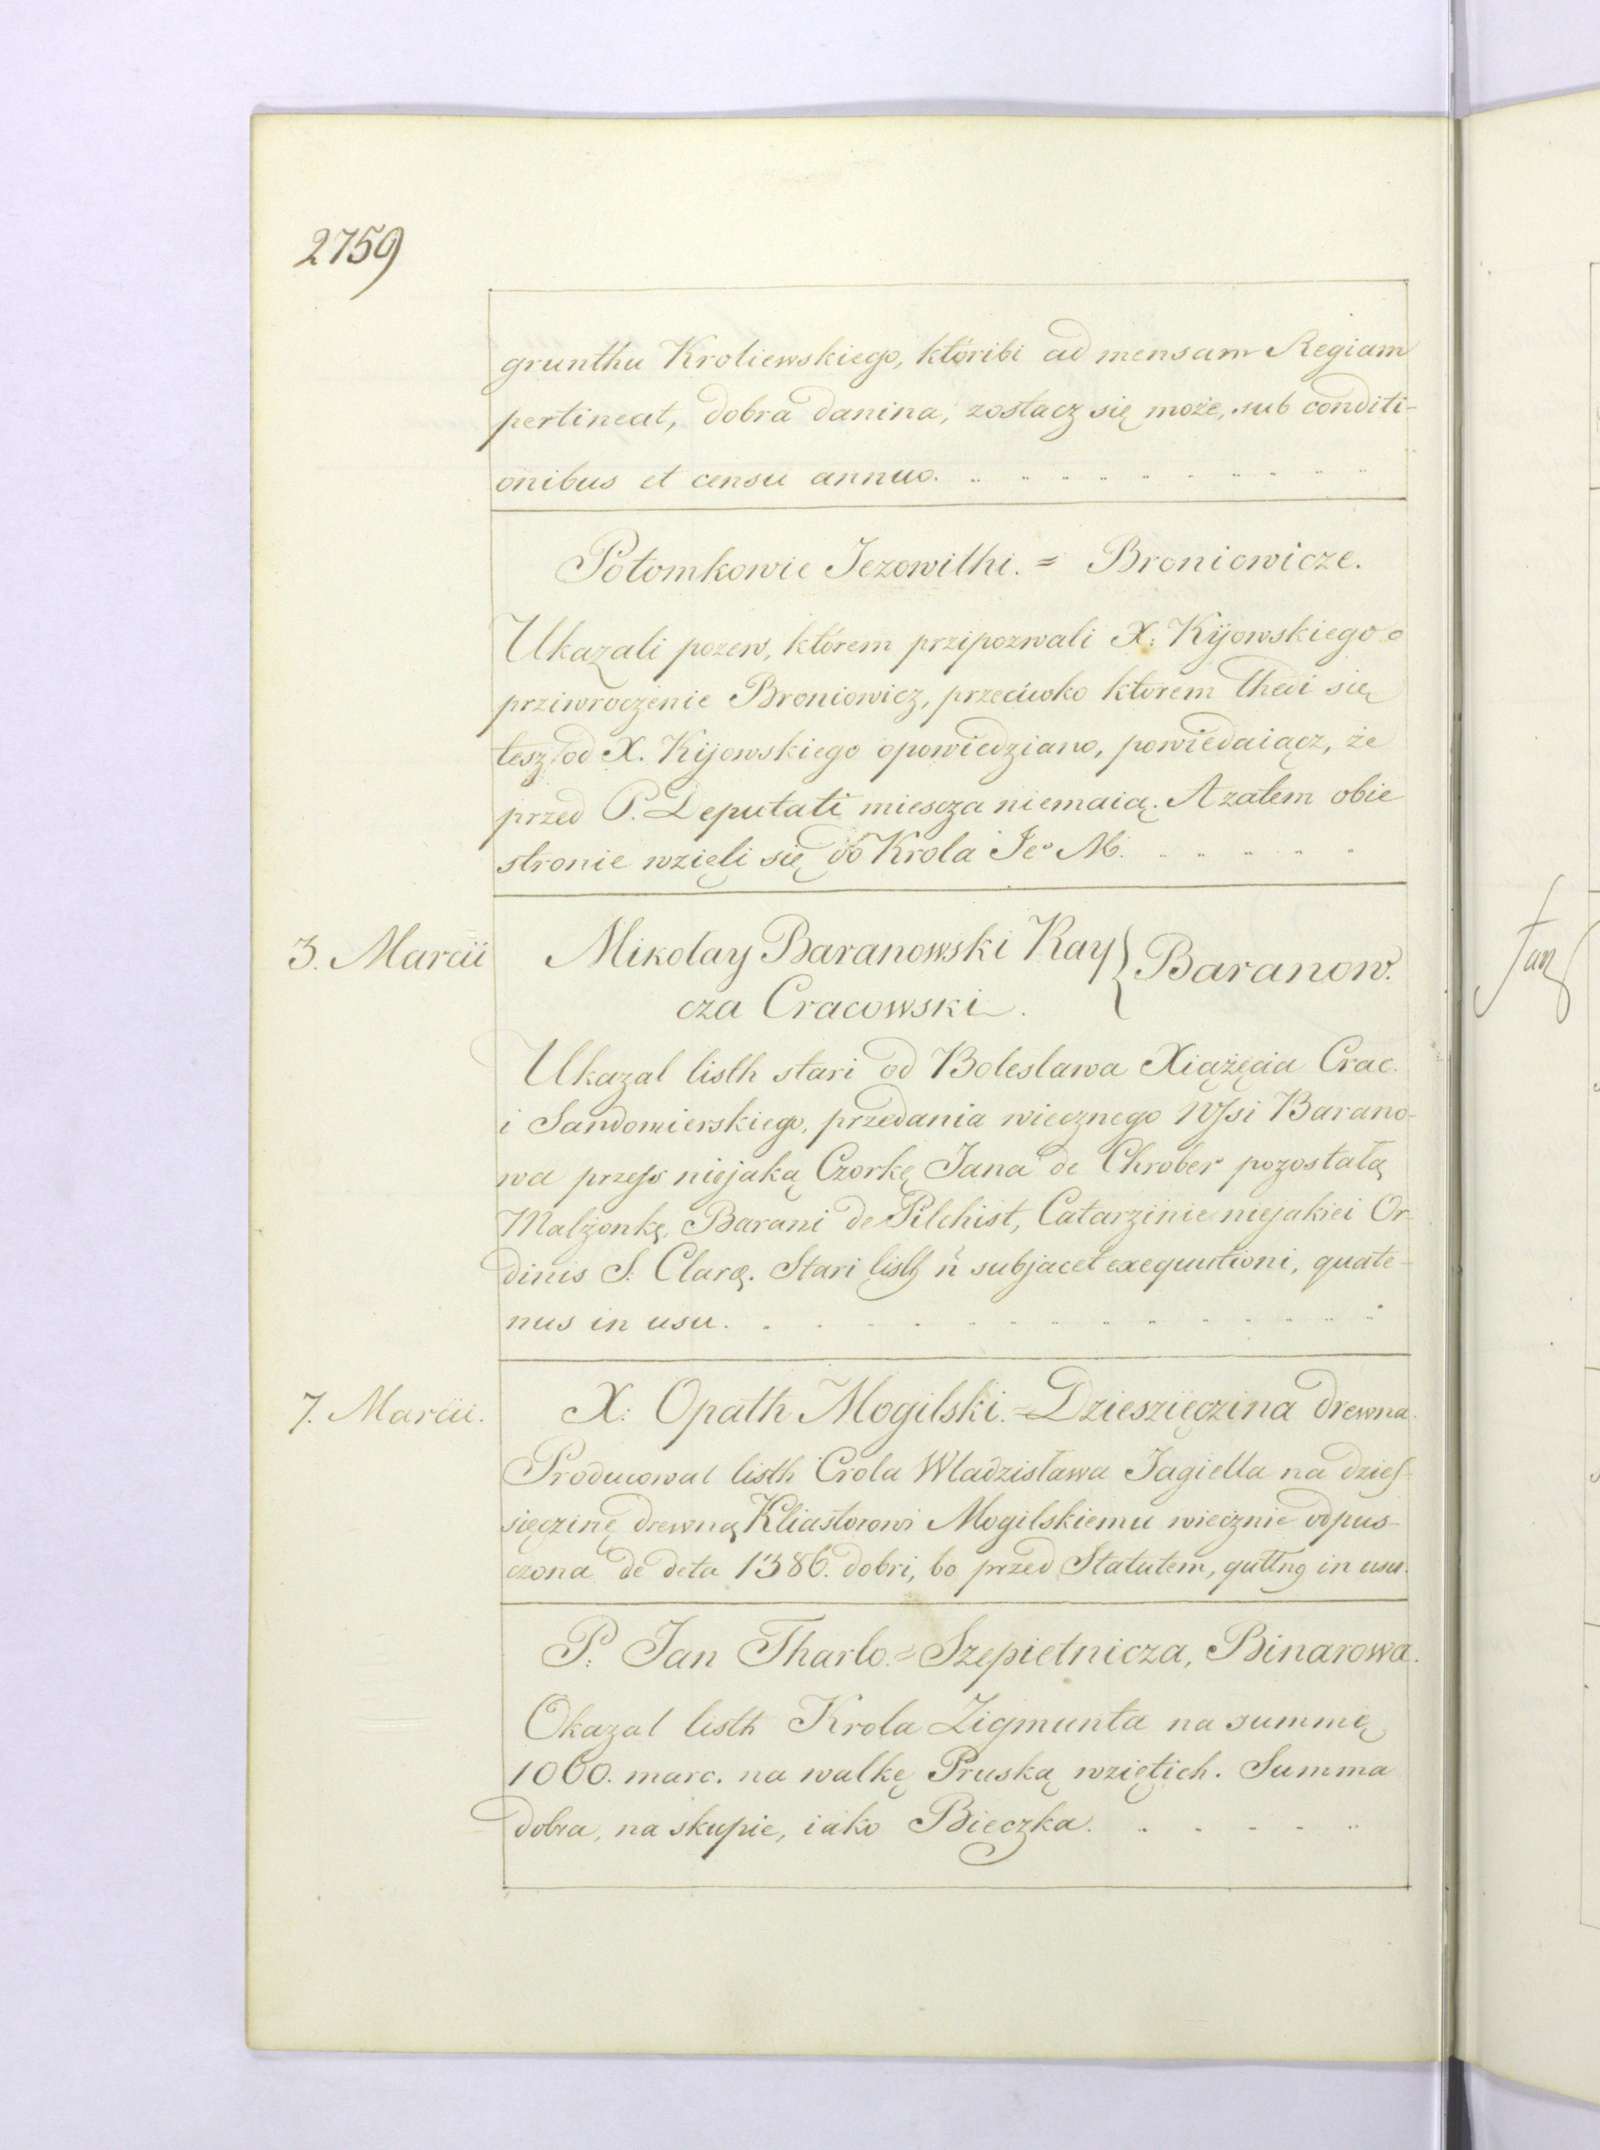 2759
grunthu Kroliewskiego, któribi ad mensam Regiam
pertineat, dobra danina, zostacz się może, sub conditi-
onibus et censu annuo.
Potomkowie Jezowithi. = Broniowicze.
Ukazali pozew, którem przipozwali X: Kijowskiego o
prziwroczenie Broniowicz, przeciwko ktorem thedi się
tesz od X. Kijowskiego opowiedziano, powiedaiącz, że
przed P. Deputati miescza niemaią. A zatem obie
stronie wzięli się do Krola Je° M.
3. Marcii
Mikolay Baranowski Ray } Baranow.
cza Cracowski.
Ukazal listh stari od Boleslawa Xiążęcia Crac.
i Sandomierskiego, przedania wiecznego Wsi Barano-
wa przess niejaką Czorkę Jana de Chrober pozostałą
Malżonkę Barani de Pilchist, Catarzinie niejakiei Or-
dinis S. Claræ. Stari listh n̄ subjacet exequutioni, quate-
nus in usu.
7. Marcii.
X: Opath Mogilski. = Dzieszięczina drewna.
Producowal listh Crola Wladzisława Jagiella na dzies-
sięczinę drewną Kliastorowi Mogilskiemu wiecznie odpus-
czona de data 1386. dobri, bo przed Statutem, quttng in usu.
P: Jan Tharlo. = Szepietnicza, Binarowa.
Okazal listh Krola Zigmunta na summę
1000. marc. na walkę Pruską wziętich. Summa
dobra, na skupie, iako Bieczka.